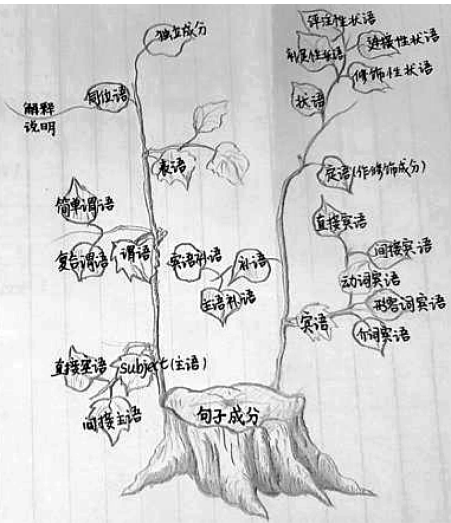 独立成分
同位语
解释
说明
表语
简单谓语
复合谓语
谓语
宾语补语
补语
主语补语
直接主语
subject(主语)
间接主语
句子成分
评注性状语
连接性状语
修饰性状语
状语
定语(作修饰成分)
直接宾语
间接宾语
动词宾语
形容词宾语
介词宾语
宾语